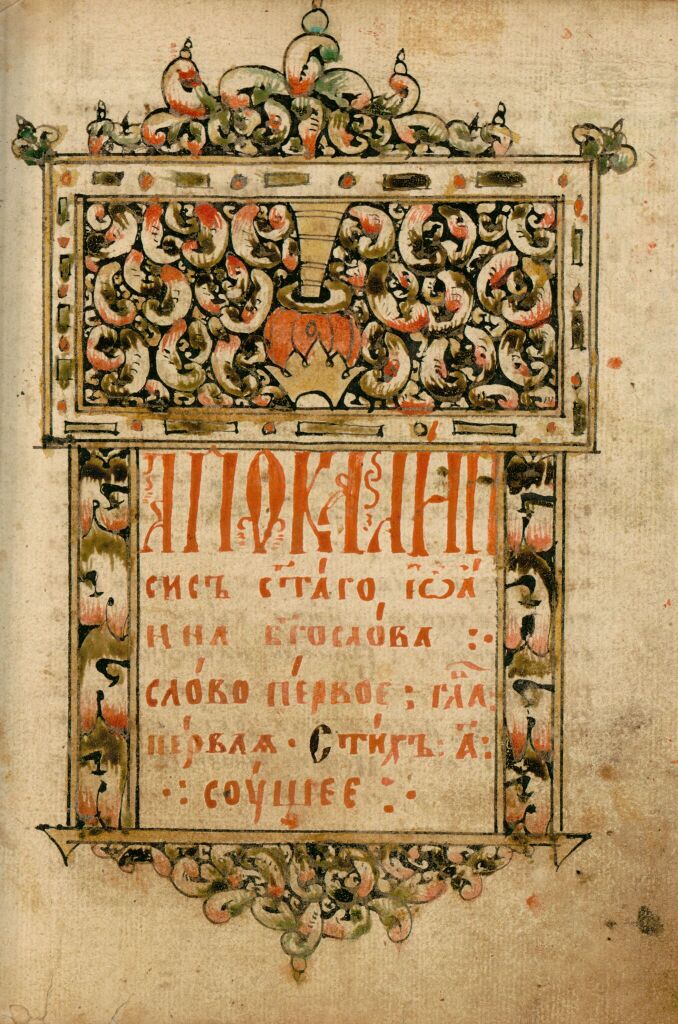 АПОКАЛИП
сисъ ст҃а́го їѡ҆а́
нна бг҃осло́ва :·
сло́во пе́рвое : гла҃
пе́рваѧ · Стихъ : а҃ :
·: соу́щее :·